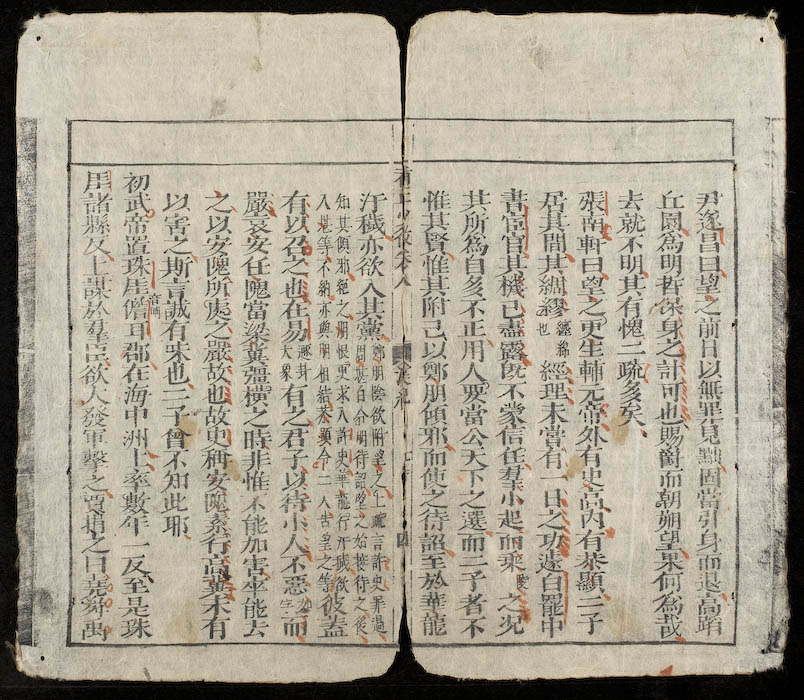 尹遂昌曰望之前日以無罪見黜固當引身而退高蹈
丘園為明哲保身之計可也賜爵而朝朔望果何為哉
去就不明其有愧二疏多矣
張南軒曰望之更生輔元帝外有史高內有恭顯二子
居其間其綢繆纏綿也經理未嘗有一日之功遽白罷中
書宦官其機已盡露既不蒙信任羣小起而乘陵之况
其所為自多不正用人要當公天下之選而二子者不
惟其賢惟其附己以鄭朋傾邪而使之待詔至於華龍
卷八 漢紀
汙穢亦欲入其黨鄭朋陰欲附望之上疏言許史罪過周堪白令朋待詔望之始接待之後
知其傾邪絕之朋恨更求入許史華龍行汙穢欲入堪等不納亦與朋相結恭顯令二人告望之等彼蓋
有以召之也在易遯卦大象有之君子以待小人不惡如字而
嚴袁安任隗當梁冀彊橫之時非惟不能加害率能去
之以安隗所處之嚴故也故史稱安隗素行高冀未有
以害之斯言誠有味也二子曾不知此耶
初武帝置珠厓儋耳郡在海中洲上率數年一反至是珠
厓諸縣反上謀於羣臣欲大發軍擊之賈捐之曰堯舜禹